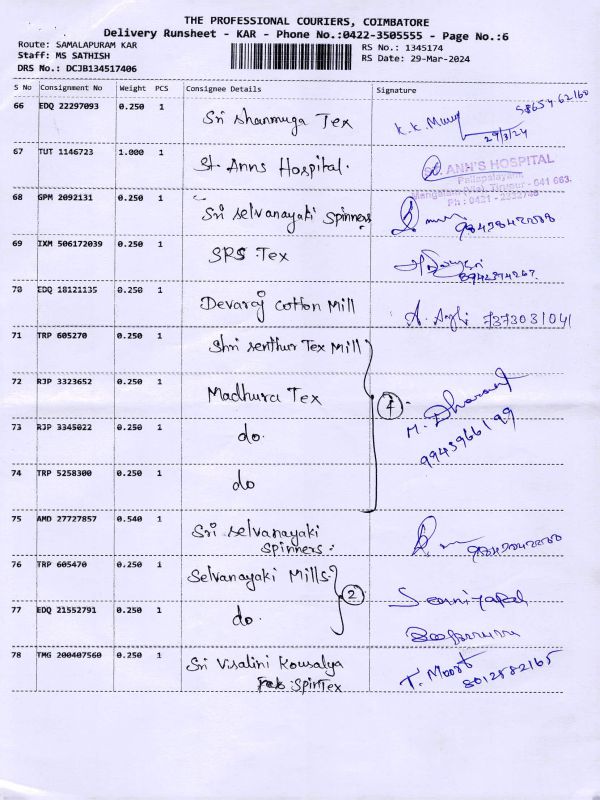 THE PROFESSIONAL COURIERS, COIMBATORE
Delivery Runsheet - KAR - Phone No.:0422-3505555 - Page No.:6
Route: SAMALAPURAM KAR
Staff: MS SATHISH
DRS No.: DCJB134517406
RS No.: 1345174
RS Date: 29-Mar-2024
S No Consignment No Weight PCS Consignee Details Signature
66 EDQ 22297093 0.250 1 Sri Shanmuga Tex 98654-62160
29/3/24
67 TUT 1146723 1.000 1 St. Anns Hospital.
ST. ANH'S HOSPITAL
Pallapalayam
Mangalam Tirupur - 641 663.
Ph : 0421 -
68 GPM 2092131 0.250 1 Sri Selvanayaki Spinners
69 IXM 506172039 0.250 1 SRS Tex
70 EDQ 18121135 0.250 1 Devaraj Cotton Mill 7373031041
71 TRP 605270 0.250 1 Shri Senthur Tex Mill
72 RJP 3323652 0.250 1 Madhura Tex 4
M. Dharani
9943966199
73 RJP 3345022 0.250 1 do.
74 TRP 5258300 0.250 1 do
75 AMD 27727857 0.540 1 Sri Selvanayaki
Spinners.
76 TRP 605470 0.250 1 Selvanayaki Mills.
2
77 EDQ 21552791 0.250 1 do.
78 TMG 200407560 0.250 1 Sri Visalini Kousalya
SpinTex
8012582165